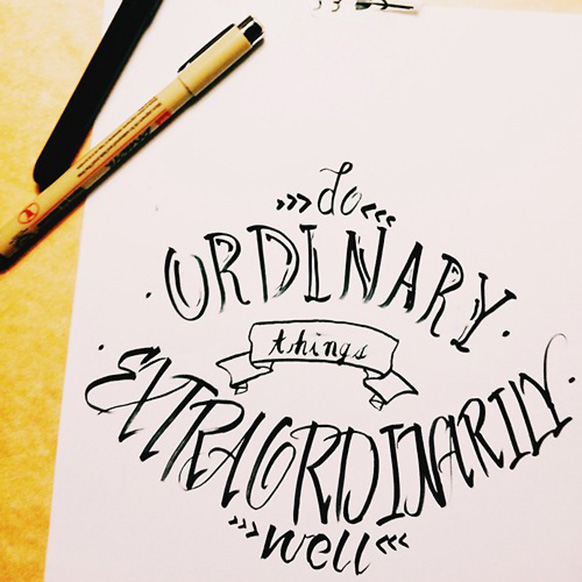 >>> do <<<
· ORDINARY ·
things
· EXTRAORDINARILY ·
>>> well <<<